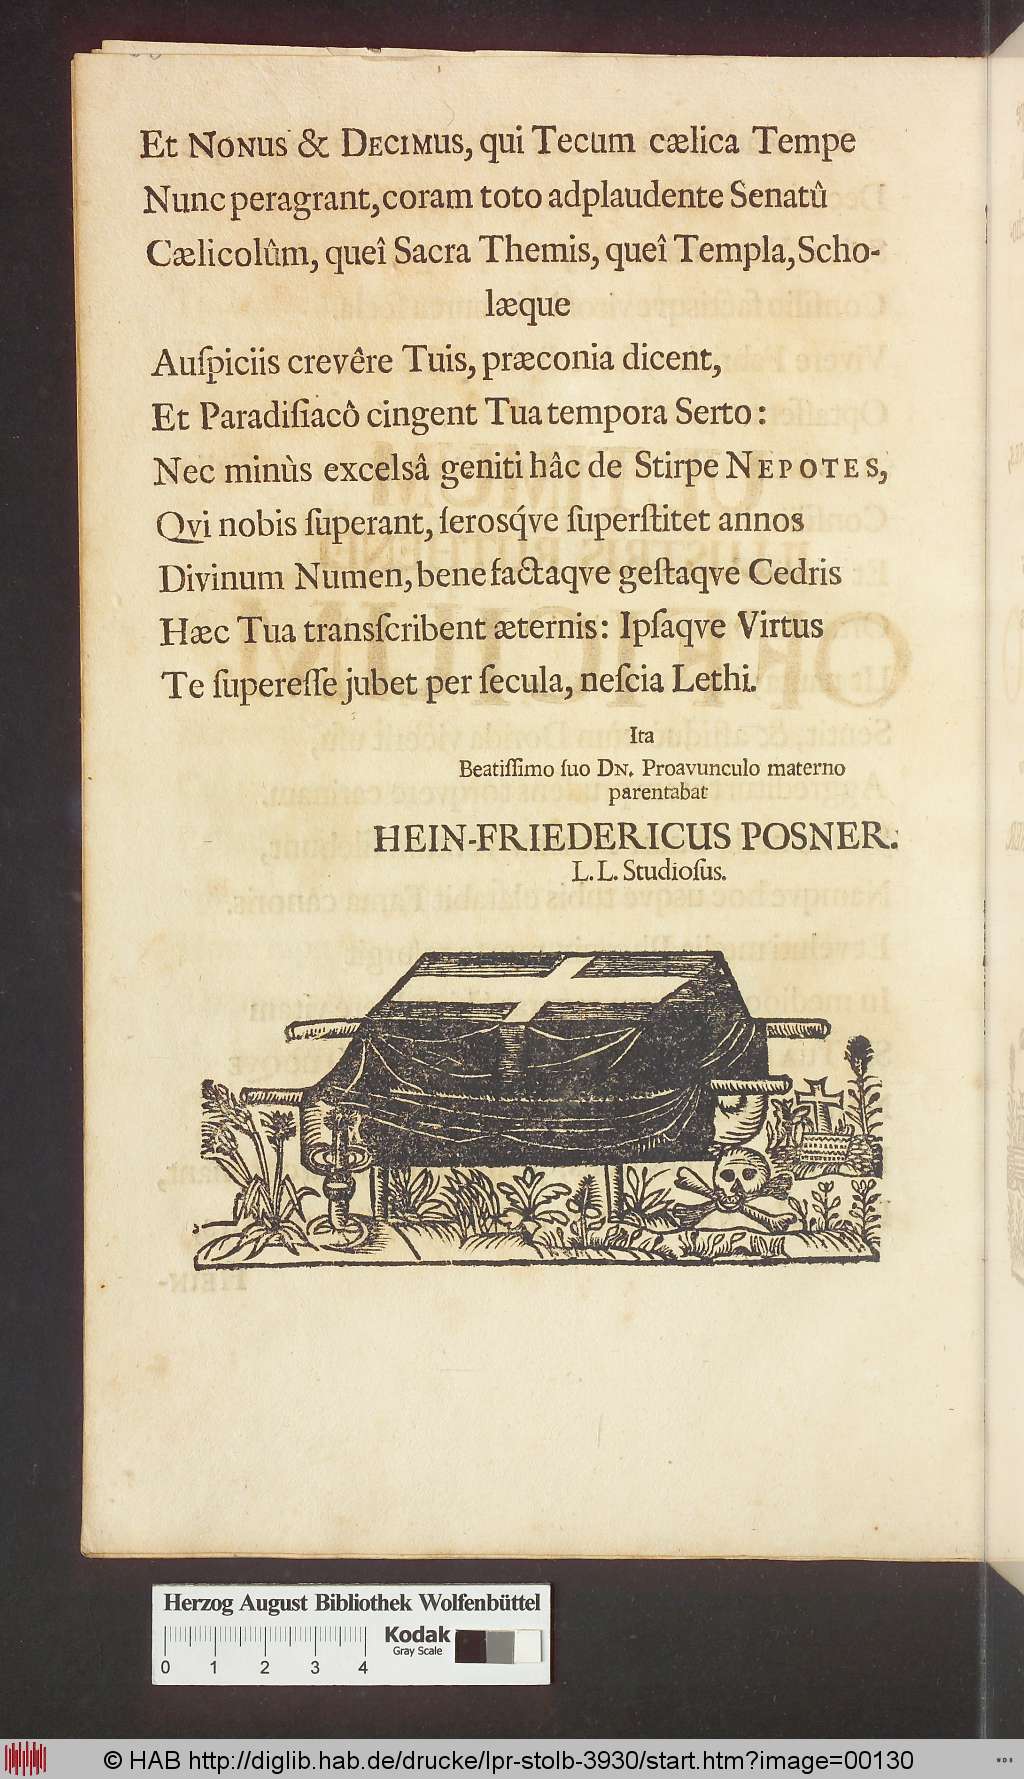 Et NONUS & DECIMUS, qui Tecum cælica Tempe
Nunc peragrant, coram toto adplaudente Senatû
Cælicolûm, queî Sacra Themis, queî Templa, Scho-
læque
Auſpiciis crevêre Tuis, præconia dicent,
Et Paradiſiacô cingent Tua tempora Serto:
Nec minùs excelsâ geniti hâc de Stirpe NEPOTES,
Qvi nobis ſuperant, ſerosq́ve ſuperſtitet annos
Divinum Numen, bene factaqve geſtaqve Cedris
Hæc Tua transſcribent æternis: Ipſaqve Virtus
Te ſupereſſe jubet per ſecula, neſcia Lethi.
Ita
Beatiſſimo ſuo DN. Proavunculo materno
parentabat
HEIN-FRIEDERICUS POSNER.
L. L. Studioſus.
Herzog August Bibliothek Wolfenbüttel
Kodak
Gray Scale
0 1 2 3 4
© HAB http://diglib.hab.de/drucke/lpr-stolb-3930/start.htm?image=00130